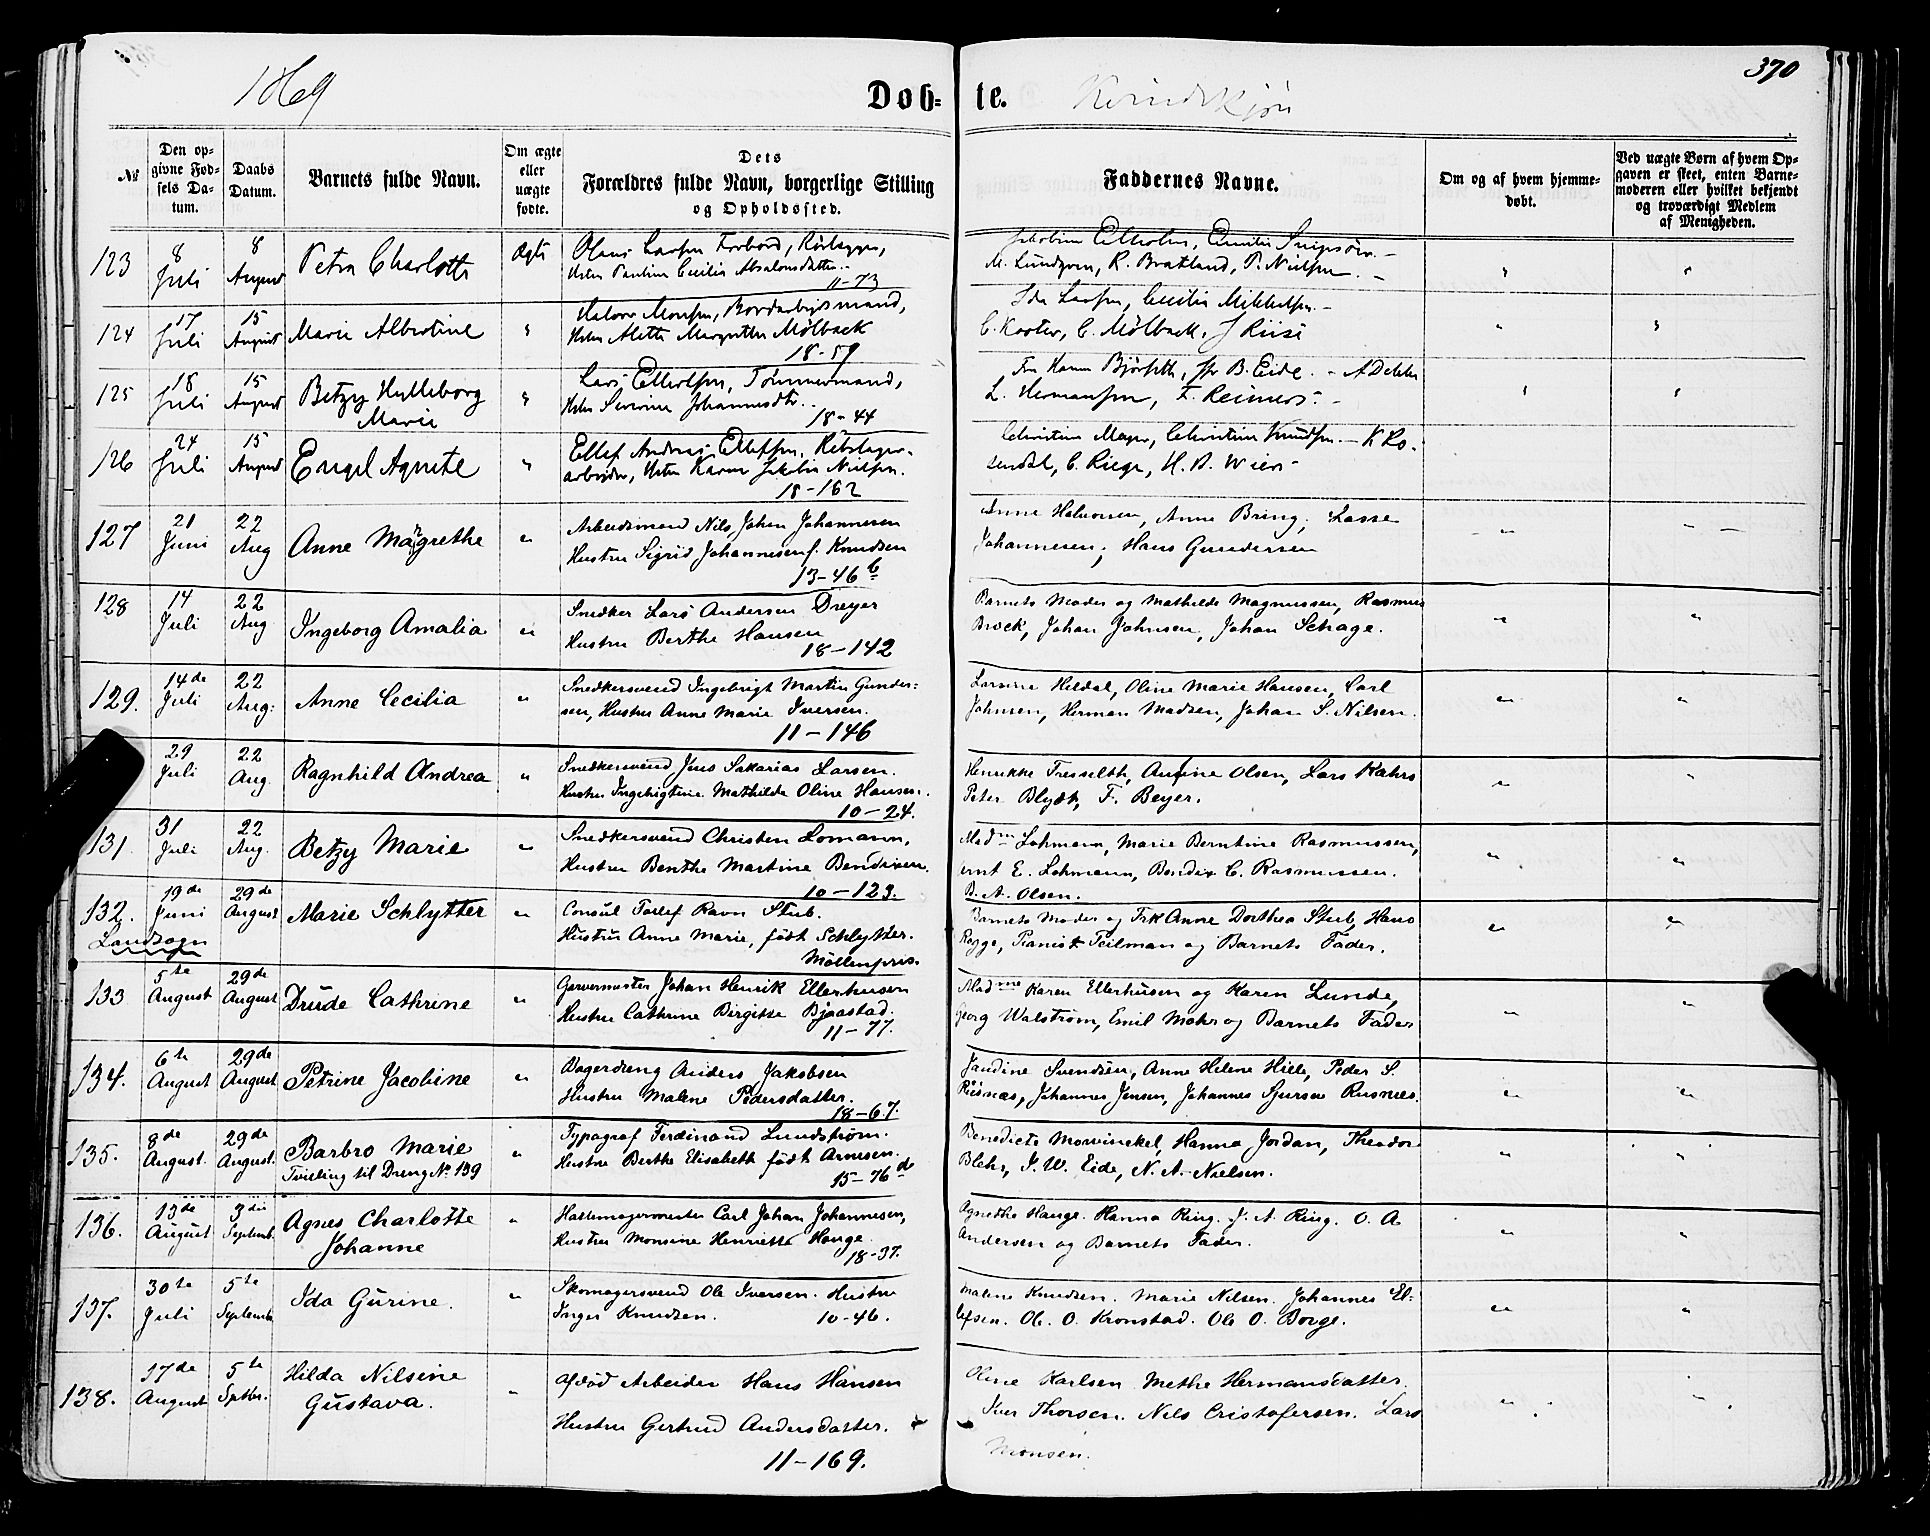 1869
Døb-te.
Kvindekjøn
370
№
Den op-
givne Fød-
sels Da-
tum.
Daabs
Datum.
Barnets fulde Navn.
Om ægte
eller
uægte
fødte.
Dets
Forældres fulde Navn, borgerlige Stilling
og Opholdssted.
Faddernes Navne.
Om og af hvem hjemme-
døbt.
Ved uægte Børn af hvem Op-
gaven er skeet, enten Barne-
moderen eller hvilket bekjendt
og troværdigt Medlem
af Menigheden.
123
8
Juli
8
August
Petra Charlotte
Ægte
Olaus Larsen Forbord,
Hstru Pauline Cecilie Absalonsdatter
11-73
M. Lundgren, R. Bratland, P. Nielsen
124
17
Juli
15
August
Marie Albertine
Halvor Monsen, Bordarbeidsmand,
Hstru Alette Margrethe Mølback
18-59
Ida Larsen, Cecilie Mikkelsen
C. Koster, C. Mølback, J Riise
125
18
Juli
15
August
Betzy Hylleborg
Marie
Lars Ellertsen, Tømmermand,
Hstru Severine Johannesdtr.
18-44
B. Eide. - A Dekke
L. Hermansen, F. Reimers
126
24
Juli
15
August
Engel Agnete
Ellef Andreas Ellefsen, Rebslager-
arbeider, Hstru Karen Jakobine Nielsen.
18-162
Christine Meyer, Christine Knudsen - K Ro-
sendal, C. Riege, H. B. Wiers
127
21
Juni
22
Aug
Anne Margrethe
Arbeidsmand Nils Johan Johannesen
Hustru Sigrid Johannesen f. Knudsen
13-46 b
Anne Halvorsen, Anne Bring, Lasse
Johannesen, Hans Gundersen
128
14
Juli
22
Aug
Ingeborg Amalia
Snedker Lars Andersen Dreyer
Hustru Berthe Hansen
18-142
Barnets Moder og Mathilde Magnussen, Rasmus
Brock, Johan Johnsen, Johan Schage.
129.
14de
Juli
22
Aug:
Anne Cecilia
Snedkersvend Ingebrigt Martin Gunder-
sen, Hustru Anne Marie Iversen.
11-146
Larsine Hildal, Oline Marie Hansen, Carl
Johnsen, Herman Madsen, Johan S. Nilsen.
29
Juli
22
Aug.
Ragnhild Andrea
Snedkersvend Jens Sakarias Larsen.
Hustru Ingebrigtine Mathilde Oline Hansen.
10-24.
Henrikke Tresselth, Antine Olsen, Lars Kahrs
Peter Blydt, F. Beyer.
131.
31
Juli
22
Aug.
Betzy Marie
Snedkersvend Christen Lomann,
Hustru Benthe Martine Bendixen.
10-123.
Madme Lohmann, Marie Berntine Rasmussen,
E. Lohmann, Bendix C. Rasmussen.
B. A. Olsen.
132.
Landsogn
19de
Juni
29de
August
Marie Schlytter
Consul Tollef Ravn Stub.
Hustru Anne Marie, født Schlytter.
Møllenpris.
Barnets Moder og Frk Anne Dorthea Stub, Hans
Rogge, Pianist Teilman og Barnets Fader.
133
5te
August
29de
August
Drude Cathrine
Garvermester Johan Henrik Ellerhusen
Hustru Cathrine Birgitte Bjaastad.
11-77.
Madme Karen Ellerhusen og Karen Lunde,
Georg Walstrøm, Emil Mohr og Barnets Fader
134.
6te
August
29de
August
Petrine Jacobine
Bagerdreng Anders Jakobsen
Hustru Malene Pedersdatter.
18-67.
Jandine Svendsen, Anne Helene Hille, Peder S.
Riisnæs, Johannes Jensen, Johannes Sjursen Risnæs.
135.
8de
August.
29de
August.
Barbro Marie
Tvilling til Dreng No 139
Typograf Ferdinand Lundstrøm.
Hustru Berthe Elisabeth født Arnesen.
15-76 d
Benedicte Mowinckel, Hanna Jordan, Theodor
Blehr, J. W. Eide, N. A. Nielsen.
136.
13de
August
3die
Septemb.
Agnes Charlotte
Johanne
Hattemagermester Carl Johan Johannesen,
Hustru Monsine Henriette Hauge
18-37.
Agnethe Hauge. Hanna Ring. J. A. Ring. O. A.
Andersen og Barnets Fader.
137.
30te
Juli
5te
Septembr
Ida Gurine.
Skomagersvend Ole Iversen. Hustru
Inger Knudsen.
10-46.
Malene Knudsen. Marie Nilsen. Johannes El-
lefsen. Ole O. Kronstad. Ole O. Borge.
138.
17de
August
5te
Septbr.
Hilda Nilsine
Gustava.
Afdød Arbeider Hans Hansen
Hustru Gertrud Andersdatter.
11-169.
Oline Karlsen Methe Hermansdatter.
Iver Thorsen. Nils Cristofersen. Lars
Monsen.